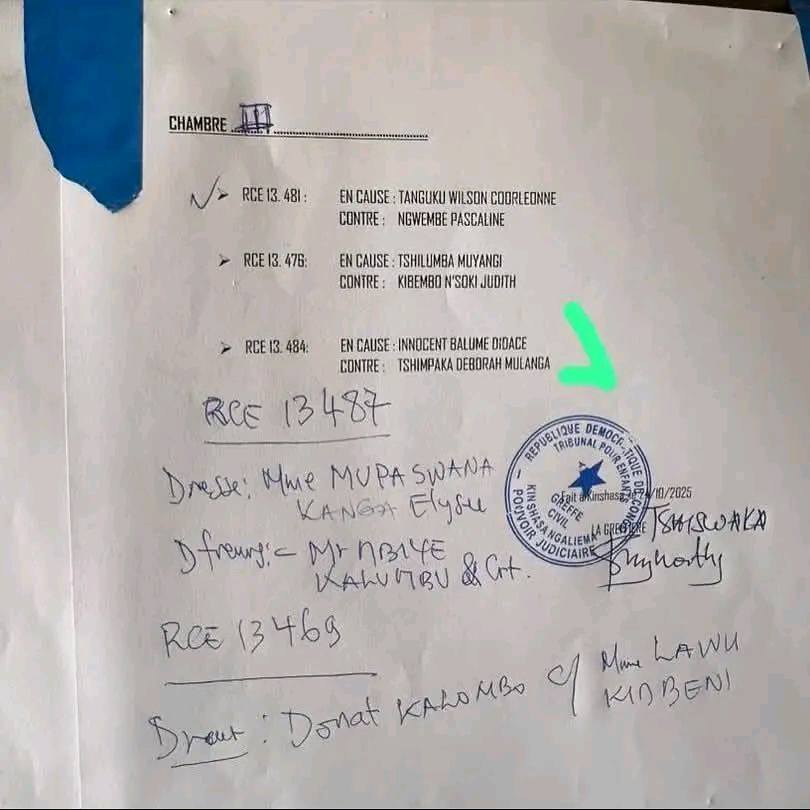 CHAMBRE III
RCE 13. 481 : EN CAUSE : TANGUKU WILSON COORLEONNE
CONTRE : NGWEMBE PASCALINE
RCE 13. 476: EN CAUSE : TSHILUMBA MUYANGI
CONTRE : KIBEMBO N'SOKI JUDITH
RCE 13. 484: EN CAUSE : INNOCENT BALUME DIDACE
CONTRE : TSHIMPAKA DEBORAH MULANGA
RCE 13487
Dresse: Mme MUPASWANA
KANGA Elysée
REPUBLIQUE DEMOCRATIQUE DU CONGO
TRIBUNAL POUR ENFANTS
KINSHASA NGALIEMA
GREFFE
CIVIL
POUVOIR JUDICIAIRE
Fait à Kinshasa, le 24/10/2025
LA GREFFIERE TSHISWAKA
Mr MBIYE
KALUMBU & Crt.
RCE 13469
: Donat KALOMBO c/ Mme LAWU
KIABENI